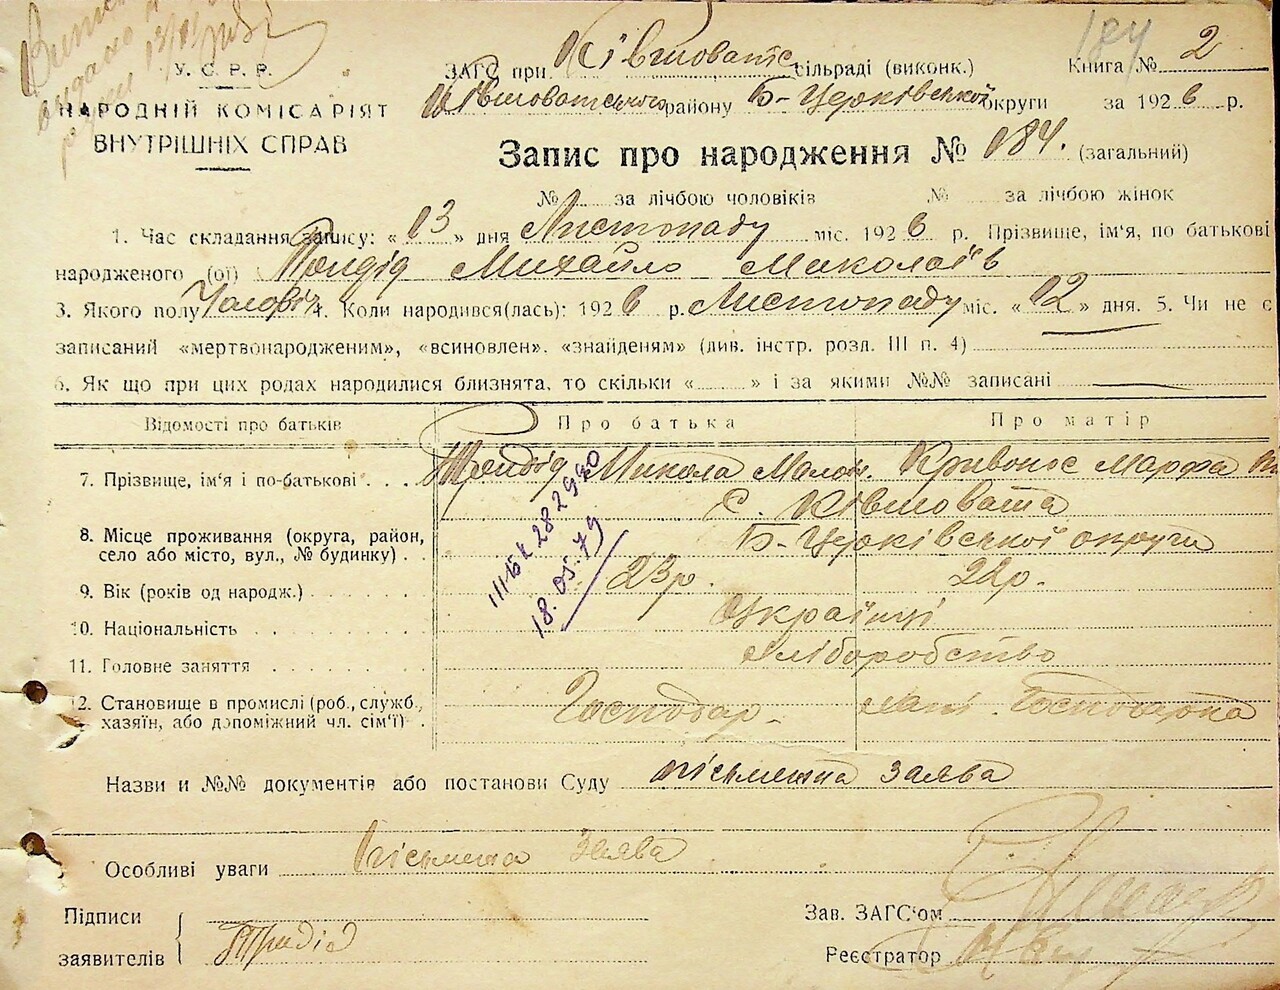 184
У. С. Р. Р.
НАРОДНІЙ КОМІСАРІЯТ
ВНУТРІШНІХ СПРАВ
ЗАГС при Ківшовате сільраді (виконк.) Книга № 2
Ківшоватського району Б-Церківської округи за 1926 р.
Запис про народження № 184. (загальний)
№ за лічбою чоловіків № за лічбою жінок
1. Час складання запису: « 13 » дня Листопаду міс. 1926 р. Прізвище, ім'я, по батькові
народженого (ої) Михайло Миколаїв
3. Якого полу Чоловіч 4. Коли народився(лась): 1926 р. Листопаду міс. « 12 » дня. 5. Чи не є
записаний «мертвонародженим», «всиновлен», «знайденям» (див. інстр. розд. III п. 4)
6. Як що при цих родах народилися близнята, то скільки « » і за якими №№ записані
Відомості про батьків Про батька Про матір
7. Прізвище, ім'я і по-батькові Микола Кривонос Марфа
с. Ківшовата
8. Місце проживання (округа, район, село або місто, вул., № будинку) Б-Церківської округи
9. Вік (років од народж.) 23 р. 22 р.
10. Національність Українці
11. Головне заняття Хліборобство
12. Становище в промислі (роб., служб., хазяїн, або допоміжний чл. сім'ї) Господар Господарка
18.05.79
Назви и №№ документів або постанови Суду письменна заява
Особливі уваги письменна заява
Підписи
заявителів
Зав. ЗАГС'ом
Реєстратор